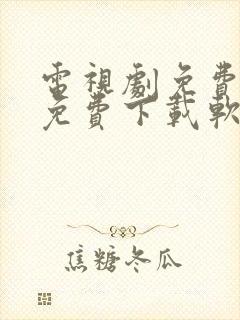 電視劇免費
免費下載軟
焦糖冬瓜